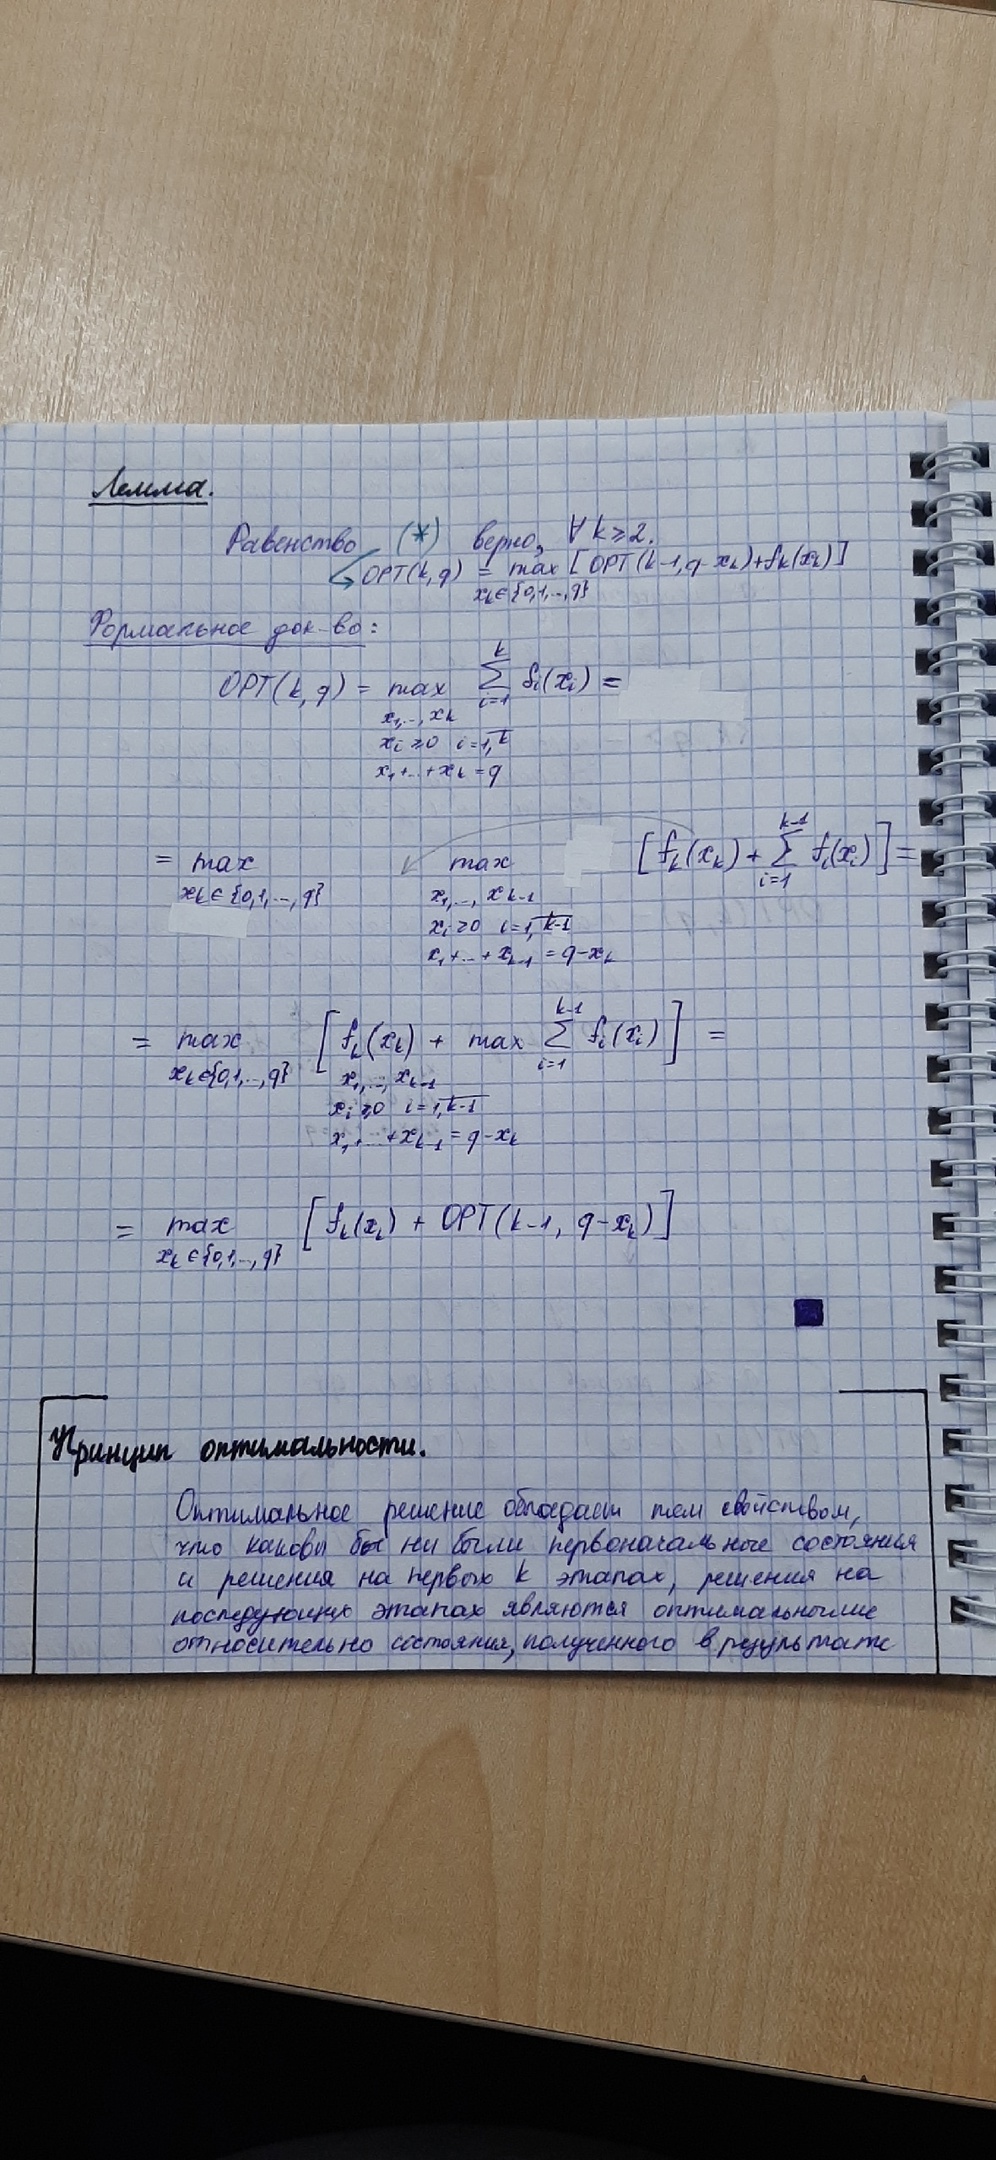 Лемма.
Равенство (*) верно, ∀ k ≥ 2.
OPT(k, q) = max [OPT(k-1, q-xₖ)+fₖ(xₖ)]
xₖ ∈ {0,1,..,q}
Формальное док-во:
OPT(k, q) = max ∑ᵢ₌₁ᵏ fᵢ(xᵢ) =
x₁,..., xₖ
xᵢ ≥ 0 i = 1,k̅
x₁+...+xₖ = q
= max max [fₖ(xₖ) + ∑ᵢ₌₁ᵏ⁻¹ fᵢ(xᵢ)] =
xₖ ∈ {0,1,..,q} x₁,..., xₖ₋₁
xᵢ ≥ 0 i = 1,k̅-̅1̅
x₁+...+xₖ₋₁ = q-xₖ
= max [fₖ(xₖ) + max ∑ᵢ₌₁ᵏ⁻¹ fᵢ(xᵢ)] =
xₖ ∈ {0,1,..,q} x₁,..., xₖ₋₁
xᵢ ≥ 0 i = 1,k̅-̅1̅
x₁+...+xₖ₋₁ = q-xₖ
= max [fₖ(xₖ) + OPT(k-1, q-xₖ)]
xₖ ∈ {0,1,..,q}
Принцип оптимальности.
Оптимальное решение обладает тем свойством,
что каковы бы ни были первоначальные состояния
и решения на первых k этапах, решения на
последующих этапах являются оптимальными
относительно состояния, полученного в результате